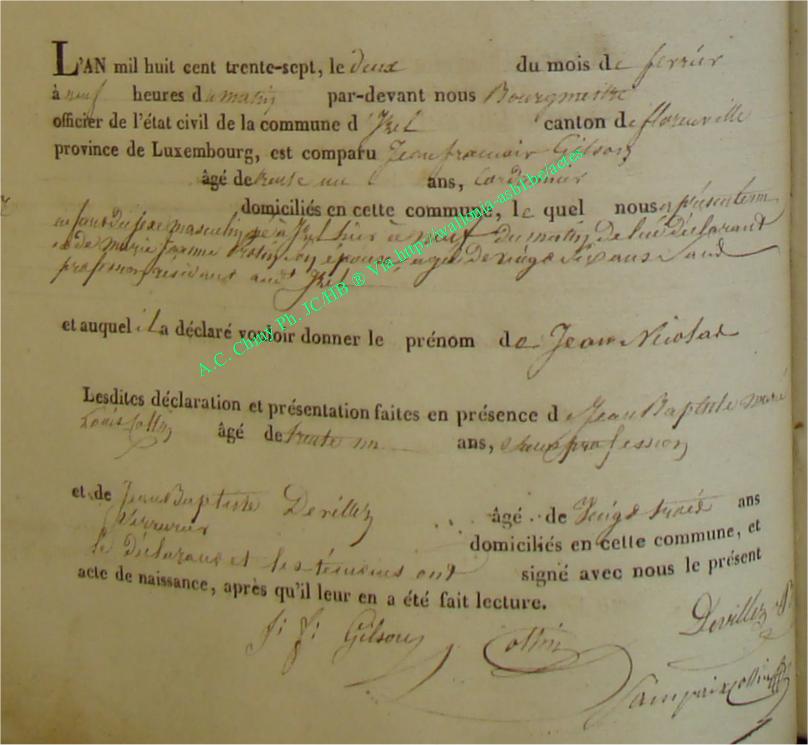 L'AN mil huit cent trente-sept, le deux du mois de fevrier
à neuf heures du matin par-devant nous Bourgmestre
officier de l'état civil de la commune d'Izel canton de florenville
province de Luxembourg, est comparu Jean francois Gilson
âgé de trente un ans, Cordonnier
domiciliés en cette commune, le quel nous a présenté un
enfant du sexe masculin né à Izel hier à neuf du matin de lui déclarant
et de Marie Jeanne son épouse agée de vingt six ans sans
profession résidant aud. Izel
et auquel il a déclaré vouloir donner le prénom de Jean Nicolas
Lesdites déclaration et présentation faites en présence de Jean Baptiste marie
Louis Collin âgé de trente un ans, sans profession
et de Jean Baptiste Devillez âgé de Vingt trois ans
Serrurier domiciliés en cette commune, et
le déclarant et les témoins ont signé avec nous le présent
acte de naissance, après qu'il leur en a été fait lecture.
J. f. Gilson Collin Devillez
Lampaix Collin
A.C. Chiny Ph. JC.HB ® Via http://wallonia-asbl.be/actes